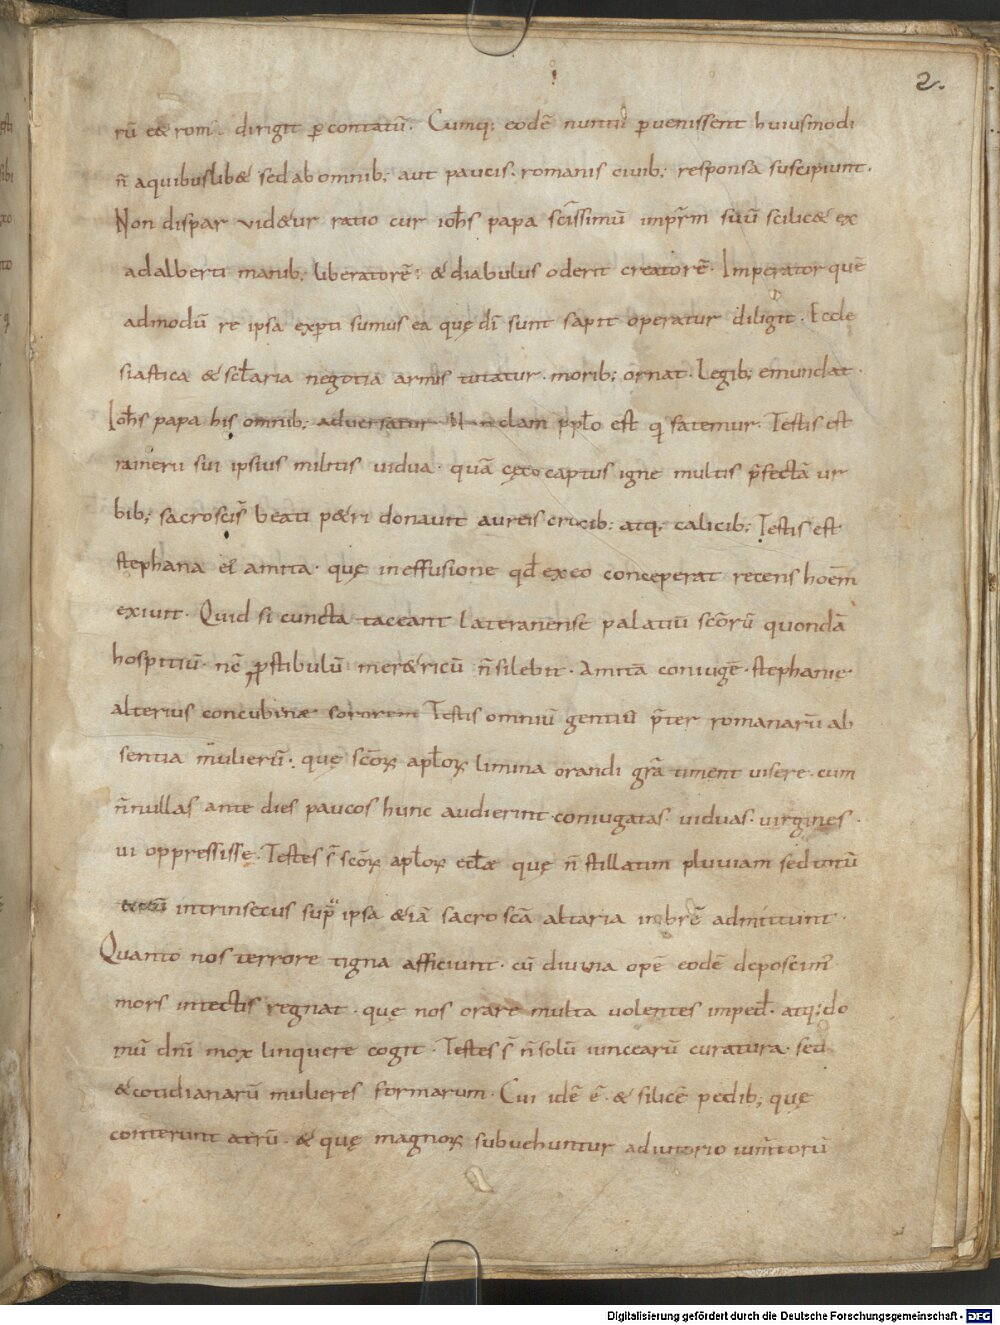 2.
rū & rom. dirigit ꝑcontatū. Cumq; eodē nuntii ꝑuenissent huiusmodi
n̄ a quibuslib& sed ab omnib; aut paucis. romanis ciuib; responsa suscipiunt.
Non dispar uid&ur ratio cur ioh̄s papa sc̄issimū impr̄m suū scilic& ex
adalberti manib; liberatorē; & diabulus oderit creatorē. Imperator quē
admodū re ipsa exꝑti sumus ea quę dī sunt sapit operatur diligit. Eccle
siastica & sc̄laria negotia armis tutatur. morib; ornat. Legib; emundat.
Ioh̄s papa his omnib; aduersatur Non clam ppl̄o est q fatemur. Testis est
rainerii sui ipsius militis uidua. quā cęco captus igne multis p̄fectā ur
bib; sacroscīs beati p&ri donauit aureis crucib; atq; calicib; Testis est
stephana ei' amita. quę in effusione qd̄ ex eo conceperat recens hoēm
exiuit. Quid si cuncta taceant Lateranense palatiū sc̄orū quondā
hospitiū. nc̄ ꝓstibulū mer&ricū n̄ silebit. Amitā coniugē. stephanie
alterius concubinae sororem Testis omniū gentiū p̄ter romanarū ab
sentia mulierū. quę sc̄oꝝ apl̄oꝝ limina orandi gr̄a timent uisere. cum
n̄nullas ante dies paucos hunc audierint coniugatas. uiduas. uirgines.
ui oppressisse. Testes s̄ sc̄oꝝ apl̄oꝝ eccl̄ae quę n̄ stillatim pluuiam sed totū
tectū intrinsecus supra ipsa &iā sacrosc̄a altaria imbrē admittunt.
Quanto nos terrore tigna afficiunt. cū diuina opē eodē deposcim'
mors in tectis regnat. quę nos orare multa uolentes imped̄. atq; do
mū dn̄i mox linquere cogit. Testes s̄ n̄ solū iuncearū curatura. sed
& cotidianarū mulieres formarum. Cui idē ē. & silicē pedib; quę
conterunt atrū. & quę magnoꝝ subuehuntur adiutorio iumtorū
Digitalisierung gefördert durch die Deutsche Forschungsgemeinschaft - DFG